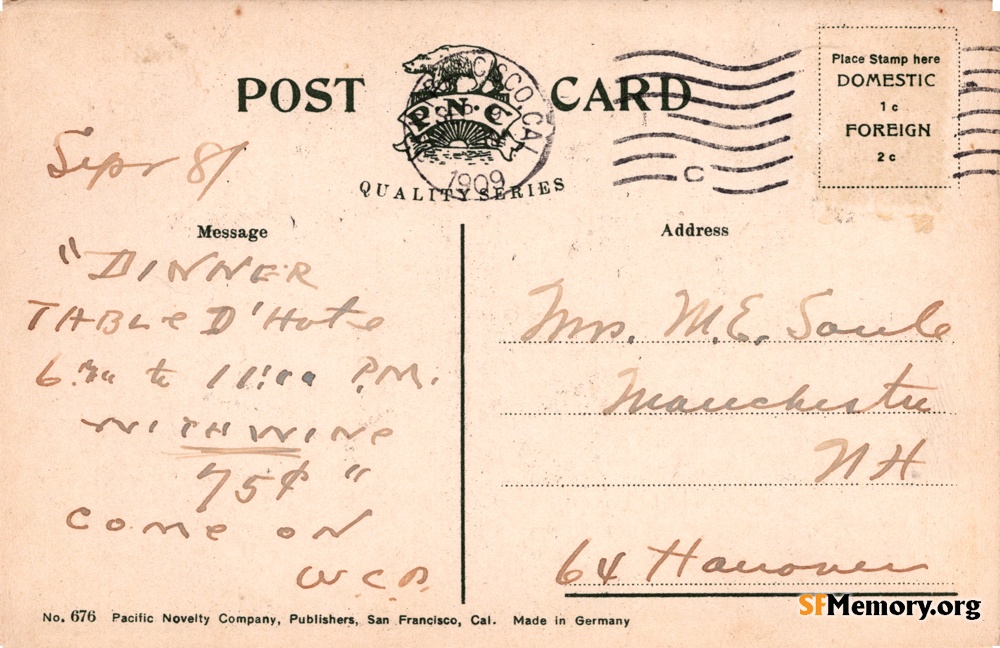 POST CARD
P. N. C.
CISCO, CAL
1909
QUALITY SERIES
C
Place Stamp here
DOMESTIC
1 c
FOREIGN
2 c
Sept 8/
Message
"DINNER
TABLe D'Hote
to 11:00 P.M.
WITH WINe
75¢ "
Come on
Address
Mrs. M.E. Soule
Manchester
N H
64 Hanover
No. 676 Pacific Novelty Company, Publishers, San Francisco, Cal. Made in Germany
SFMemory.org